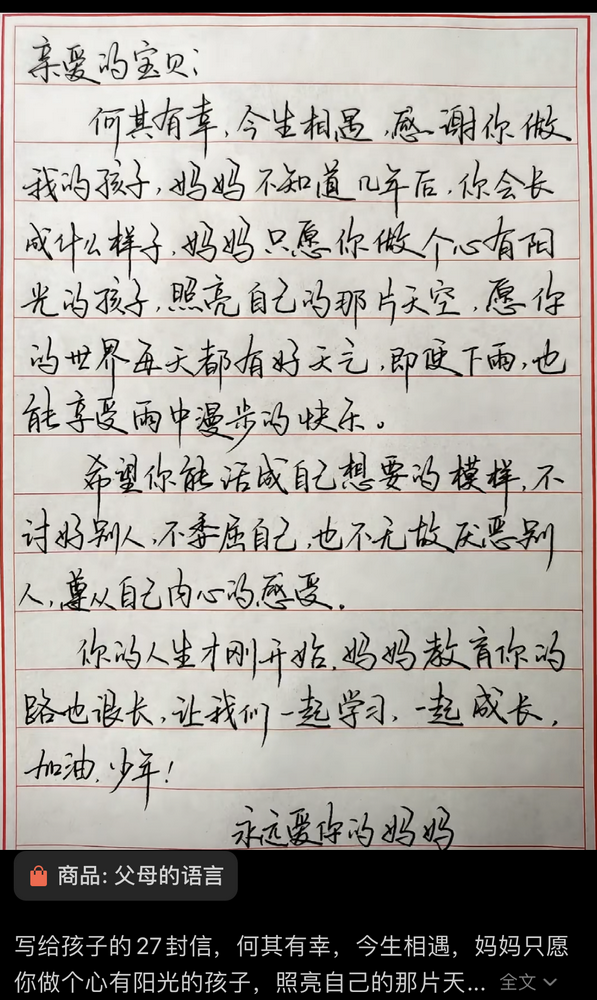 亲爱的宝贝：
何其有幸，今生相遇，感谢你做
我的孩子，妈妈不知道几年后，你会长
成什么样子，妈妈只愿你做个心有阳
光的孩子，照亮自己的那片天空，愿你
的世界每天都有好天气，即便下雨，也
能享受雨中漫步的快乐。
希望你能活成自己想要的模样，不
讨好别人，不委屈自己，也不无故厌恶别
人，尊从自己内心的感受。
你的人生才刚开始，妈妈教育你的
路也很长，让我们一起学习，一起成长，
加油，少年！
永远爱你的妈妈
商品: 父母的语言
写给孩子的27封信，何其有幸，今生相遇，妈妈只愿
你做个心有阳光的孩子，照亮自己的那片天... 全文